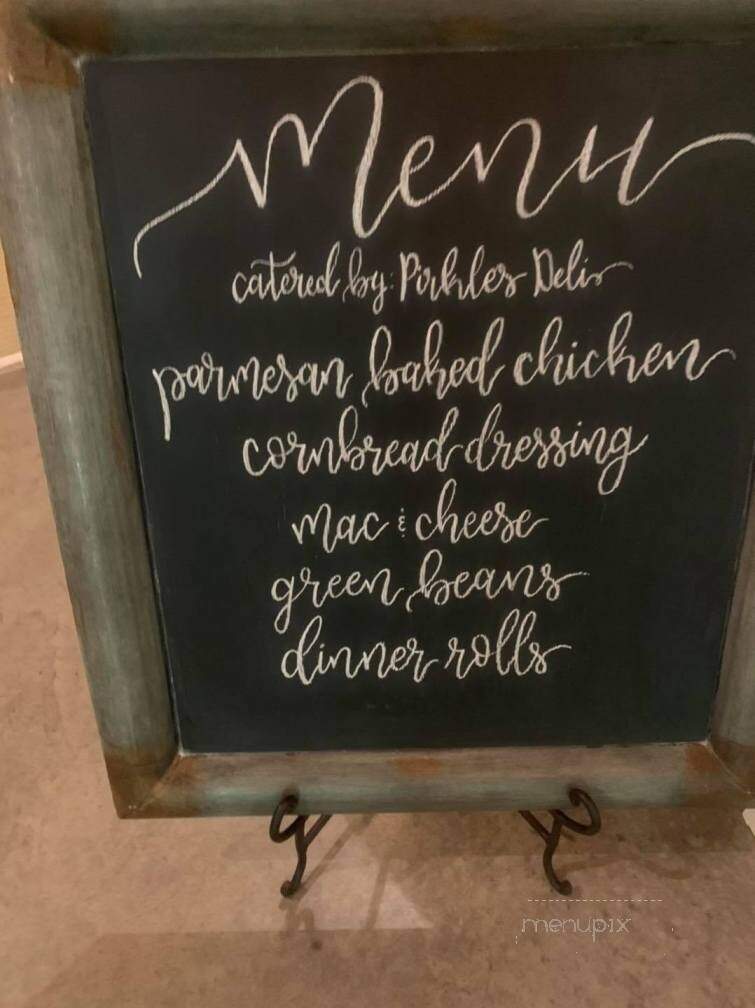 Menu
catered by: Pirkles Deli
parmesan baked chicken
cornbread dressing
mac & cheese
green beans
dinner rolls
menupix